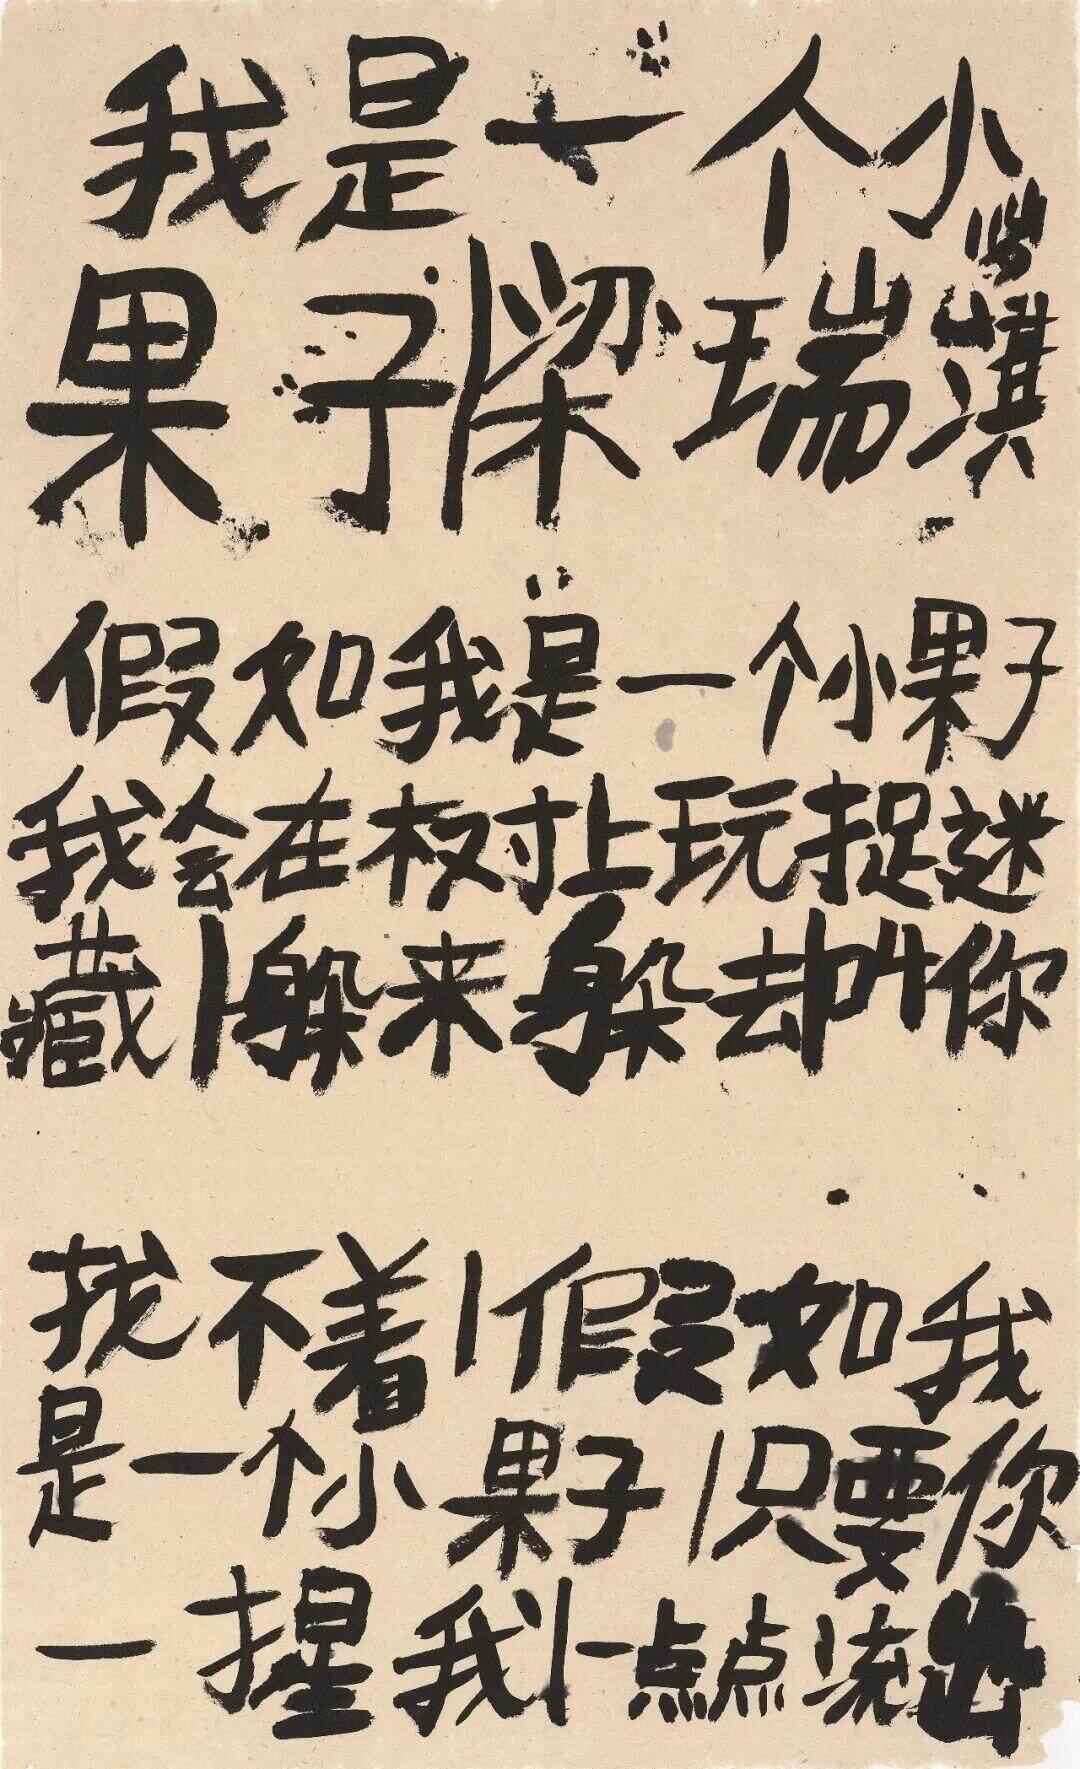 我是一个小
果子|梁瑞淇
假如我是一个小果子
我会在树上玩捉迷
藏|躲来躲去叫你
找不着|假如我
是一个小果子|只要你
一捏我|一点点流出